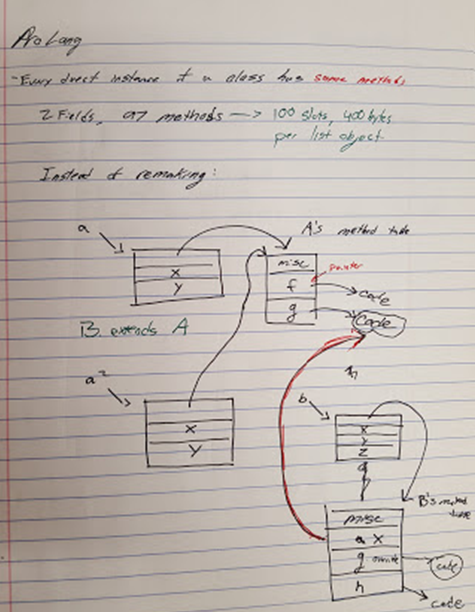 Pro Lang
- Every direct instance of a class has same methods
2 Fields, 97 methods —> 100 slots, 400 bytes
per list object
Instead of remaking:
a
A's method table
misc
pointer
x
f
code
y
g
Code
B extends A
a2
b
x
x
y
y
z
B's method
table
misc
x
g override
code
h
code